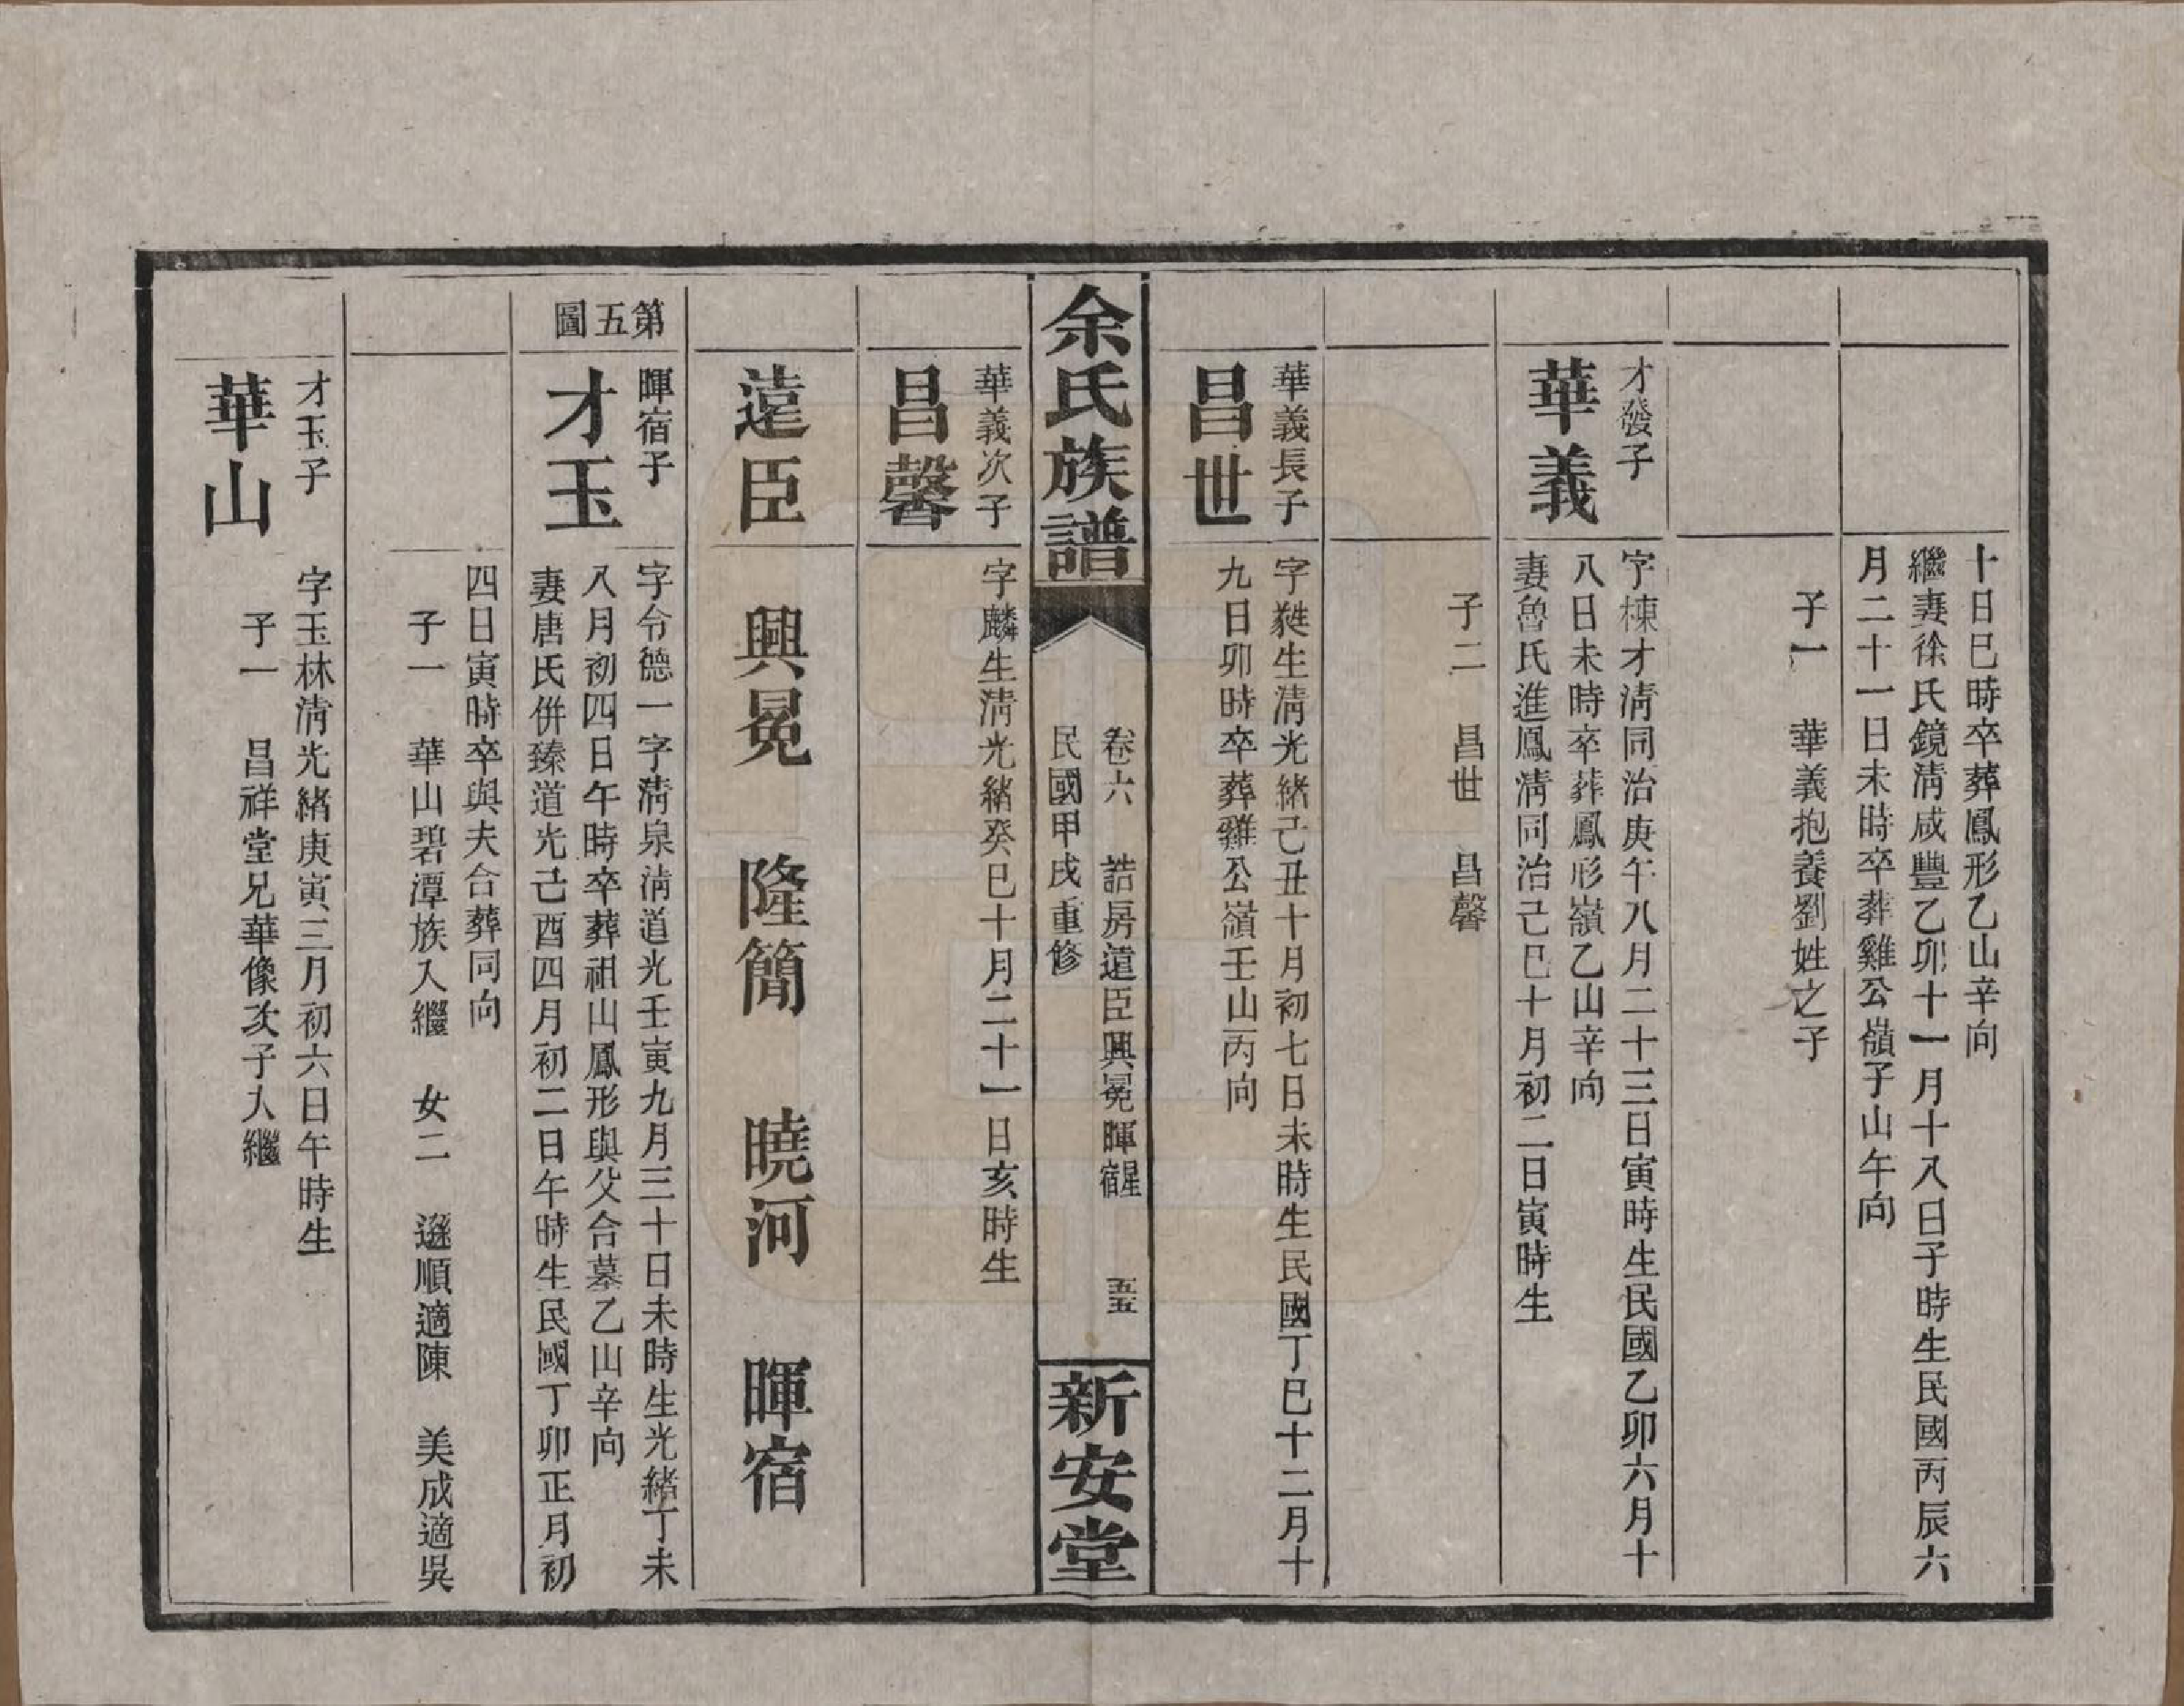 十日巳時卒葬鳳形乙山辛向
繼妻徐氏鏡淸咸豐乙卯十一月十八日子時生民國丙辰六
月二十一日未時卒葬雞公嶺子山午向
子一　華義抱養劉姓之子
才發子
華義
字棟才淸同治庚午八月二十三日寅時生民國乙卯六月十
八日未時卒葬鳳形嶺乙山辛向
妻魯氏進鳳淸同治己巳十月初二日寅時生
子二　昌世　昌馨
華義長子
昌世
字甡生淸光緒己丑十月初七日未時生民國丁巳十二月十
九日卯時卒葬雞公嶺壬山丙向
余氏族譜
卷六　誥房遠臣興冕暉宿　五五
民國甲戌重修
新安堂
華義次子
昌馨
字麟生淸光緒癸巳十月二十一日亥時生
遠臣　興冕　隆簡　曉河　暉宿
第五圖
暉宿子
才玉
字令德一字淸泉淸道光壬寅九月三十日未時生光緒丁未
八月初四日午時卒葬祖山鳳形與父合墓乙山辛向
妻唐氏倂臻道光己酉四月初二日午時生民國丁卯正月初
四日寅時卒與夫合葬同向
子一　華山碧潭族入繼　女二　遜順適陳　美成適吳
才玉子
華山
字玉林淸光緒庚寅三月初六日午時生
子一　昌祥堂兄華像次子入繼